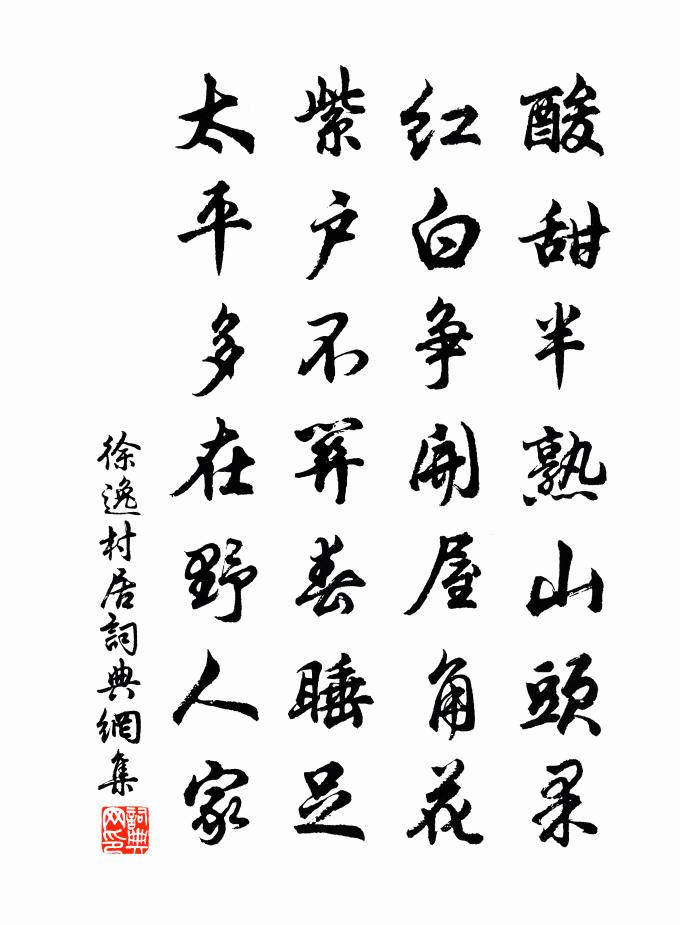 酸甜半熟山頭果
红白争開屋角花
紫户不笄春睡足
太平多在野人家
徐逸村居詞典網集
詞典网印